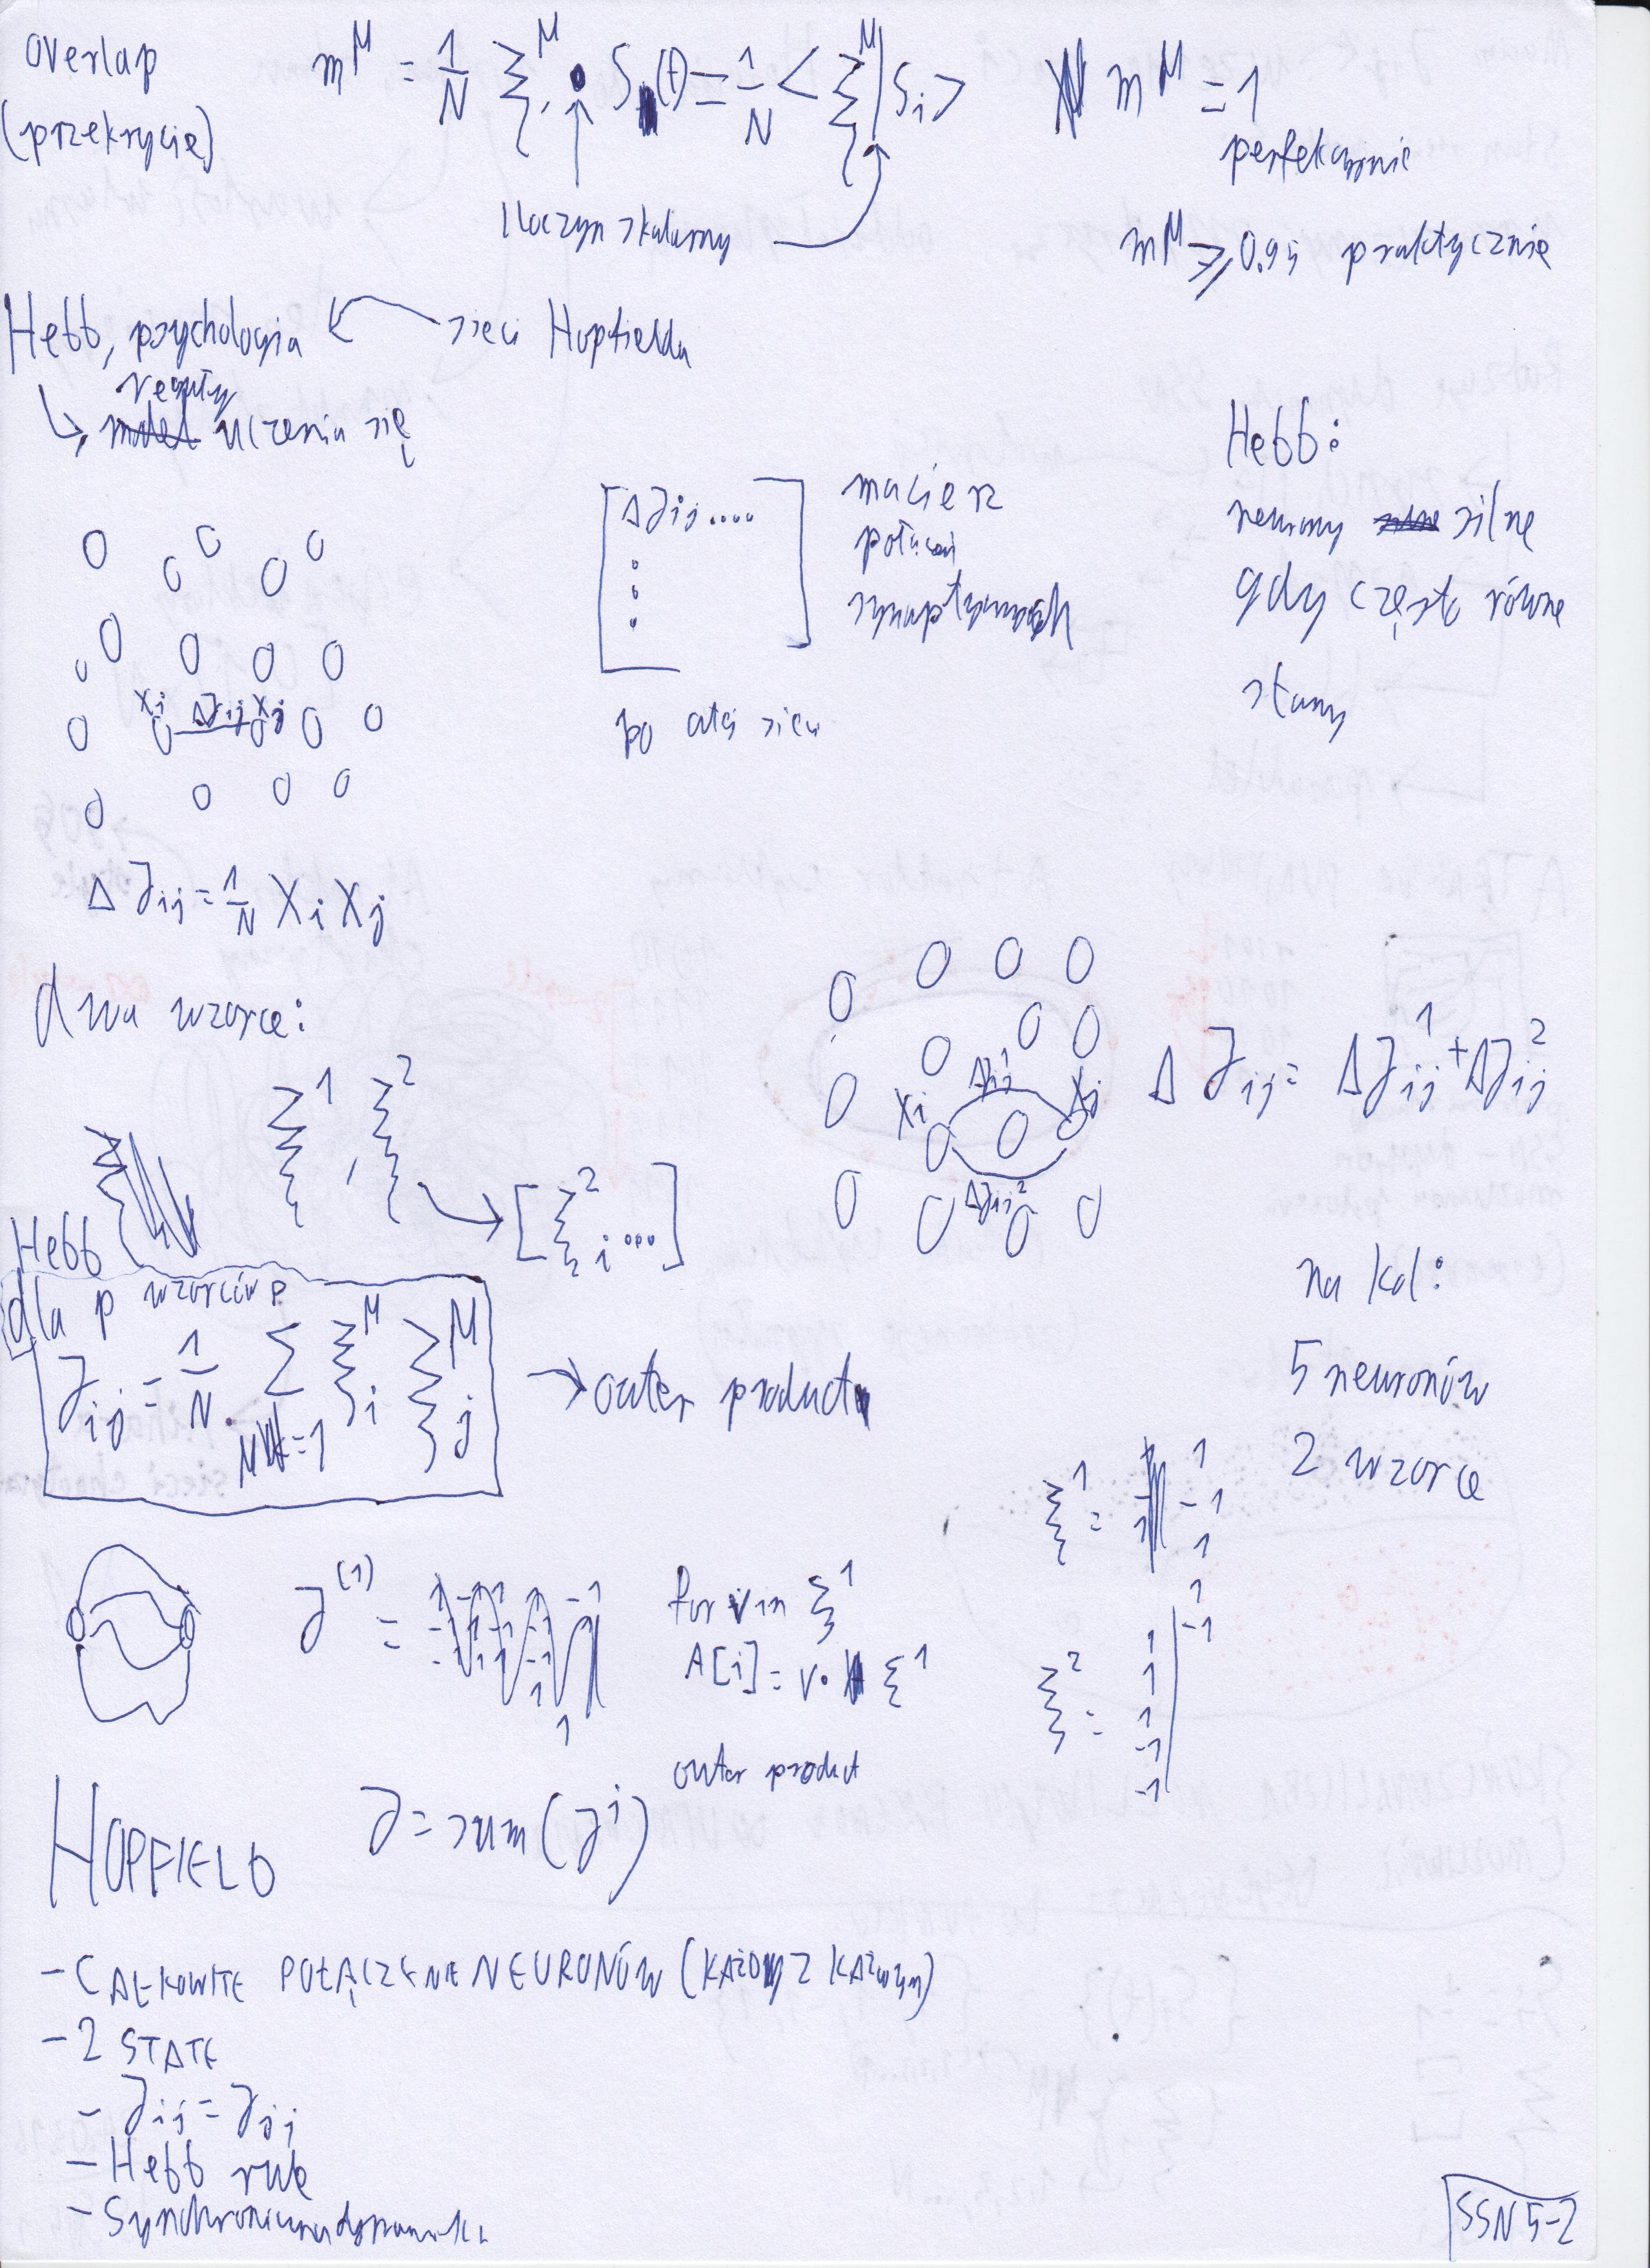 overlap
(przekrycie)
m^M = 1/N ξ^M · S(t) = 1/N <ξ^M|Si>
m^M = 1
perfekcyjnie
Iloczyn skalarny
m^M ⩾ 0.95 praktycznie
Hebb, psychologia ← sieci Hopfielda
reguły
↳ uczenia się
[ΔJij....
macierz
połączeń
synaptycznych
po całej sieci
Hebb:
neurony silne
gdy często równe
stany
Xi ΔJij Xj
ΔJij = 1/N Xi Xj
dwa wzorce:
ξ^1, ξ^2 → [ξ^2 i ...]
Xi ΔJij^1 Xj
ΔJij^2
ΔJij = ΔJij^1 + ΔJij^2
Hebb
dla p wzorców
Jij = 1/N · Σ^P M=1 ξi^M ξj^M
→ outer product
na kol:
5 neuronów
2 wzorce
ξ^1 =
1
-1
1
1
-1
J^(1) =
for v in ξ^1
A[i] = v · ξ^1
outer product
ξ^2 =
1
1
1
-1
-1
HOPFIELD
J = sum(J^i)
- CAŁKOWITE POŁĄCZENIE NEURONÓW (KAŻDY Z KAŻDYM)
- 2 STATE
- Jij = Jji
- Hebb rule
- Synchroniczna dynamika
SSN 5-2